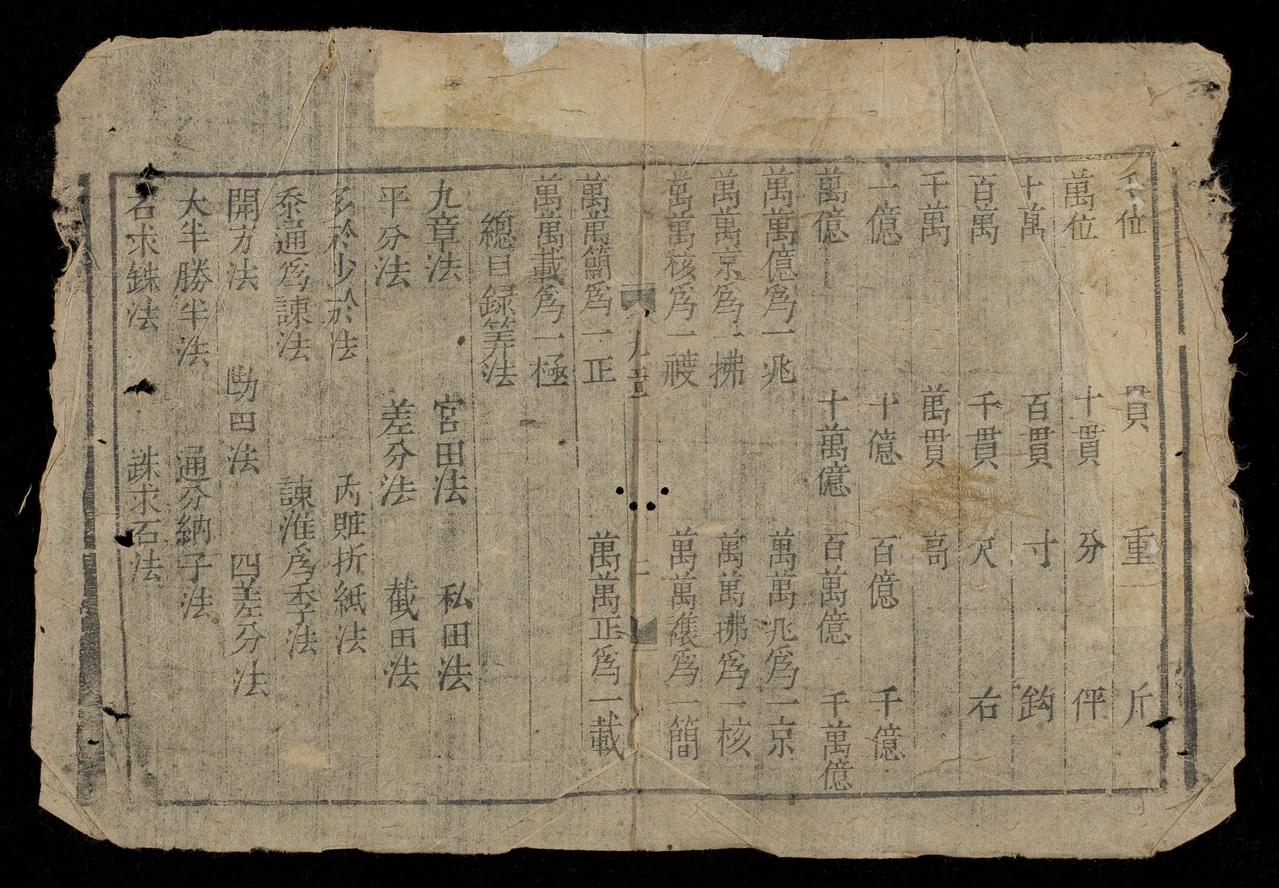 千位 貫 重 斤
萬位 十貫 分 伻
十萬 百貫 寸 鈎
百萬 千貫 尺 右
千萬 萬貫
一億 十億 百億 千億
萬億 十萬億 百萬億 千萬億
萬萬億爲一兆 萬萬兆爲一京
萬萬京爲一拂 萬萬拂爲一核
萬萬核爲一 萬萬 爲一簡
九章 二
萬萬簡爲一正 萬萬正爲一載
萬萬載爲一極
總目録筭法
九章法 宮田法 私田法
平分法 差分法 截田法
多於少於法 丙賍折紙法
泰通爲諫法 諫淮爲季法
開方法 田法 四差分法
大半勝半法 通分納子法
石求銖法 銖求石法